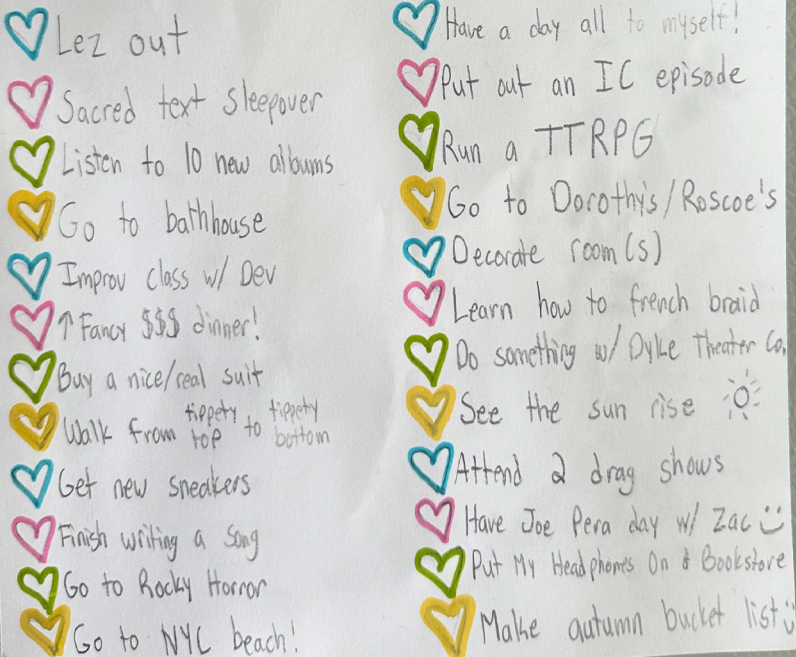 Lez out
Sacred text sleepover
Listen to 10 new albums
Go to bathhouse
Improv class w/ Dev
↑ Fancy $$$ dinner!
Buy a nice/real suit
Walk from tippety top to tippety bottom
Get new sneakers
Finish writing a song
Go to Rocky Horror
Go to NYC beach!
Have a day all to myself!
Put out an IC episode
Run a TTRPG
Go to Dorothy's/Roscoe's
Decorate room(s)
Learn how to french braid
Do something w/ Dyke Theater Co.
See the sun rise
Attend 2 drag shows
Have Joe Pera day w/ Zac :)
Put My Headphones On & Bookstore
Make autumn bucket list :)